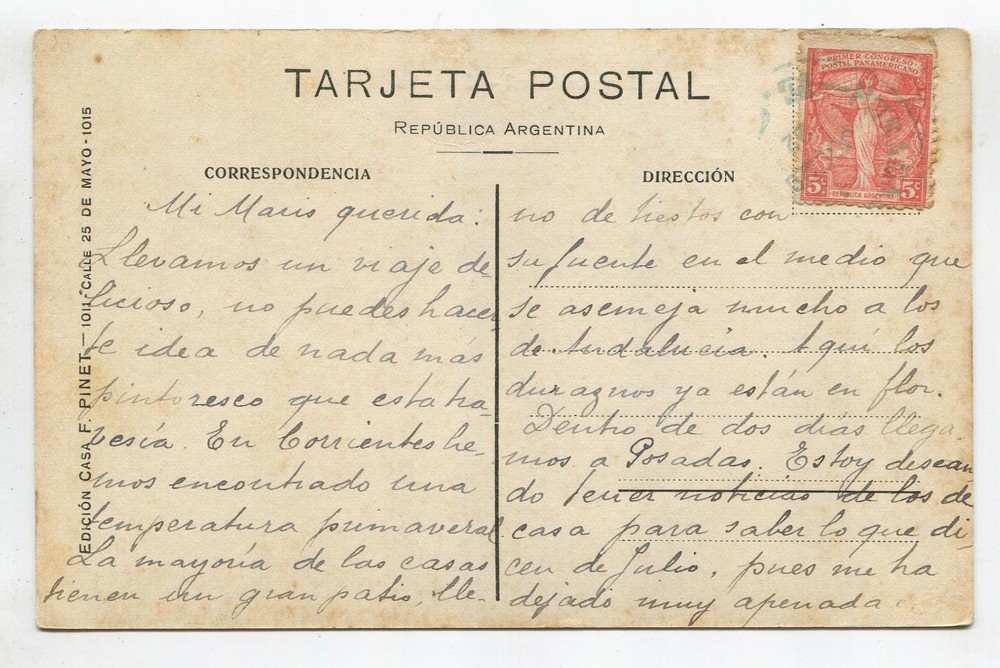 TARJETA POSTAL
REPÚBLICA ARGENTINA
CORRESPONDENCIA
Mi Maris querida:
Llevamos un viaje de-
licioso, no puedes hacer
te idea de nada más
pintoresco que esta tra-
vesía. En Corrientes he-
mos encontrado una
temperatura primaveral.
La mayoría de las casas
tienen un gran patio, lle-
DIRECCIÓN
no de tiestos con
su fuente en el medio que
se asemeja mucho a los
de Andalucía. Aquí los
duraznos ya están en flor.
Dentro de dos días llega
mos a Posadas. Estoy desean
do tener noticias de los de
casa para saber lo que di-
cen de Julio, pues me ha
dejado muy apenada.
PRIMER CONGRESO
POSTAL PANAMERICANO
5c 5c
REPUBLICA ARGENTINA
EDICIÓN CASA F. PINET — 1011 - CALLE 25 DE MAYO - 1015